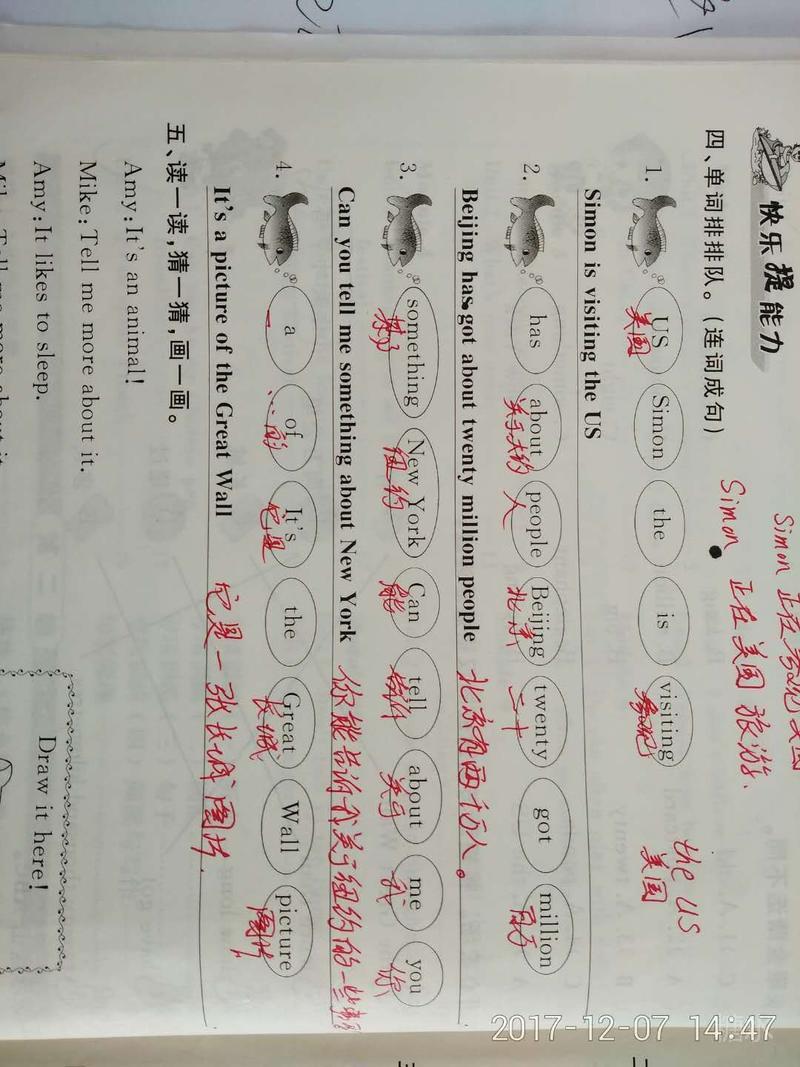 快乐提能力
四、单词排排队。(连词成句)
Simon 正在参观美国
Simon 正在美国旅游.
1. US Simon the is visiting
美国 参观
the US
美国
Simon is visiting the US
2. has about people Beijing twenty got million
关于大约 人 北京 二十 百万
Beijing has got about twenty million people 北京有两千万人。
3. something New York Can tell about me you
某事 纽约 能 告诉 关于 我 你
Can you tell me something about New York 你能告诉我关于纽约的一些事
4. a of It's the Great Wall picture
一 …的 它是 长城 图片
It's a picture of the Great Wall 它是一张长城图片.
五、读一读,猜一猜,画一画。
Amy:It's an animal!
Mike:Tell me more about it.
Amy:It likes to sleep.
Draw it here!
2017-12-07 14:47